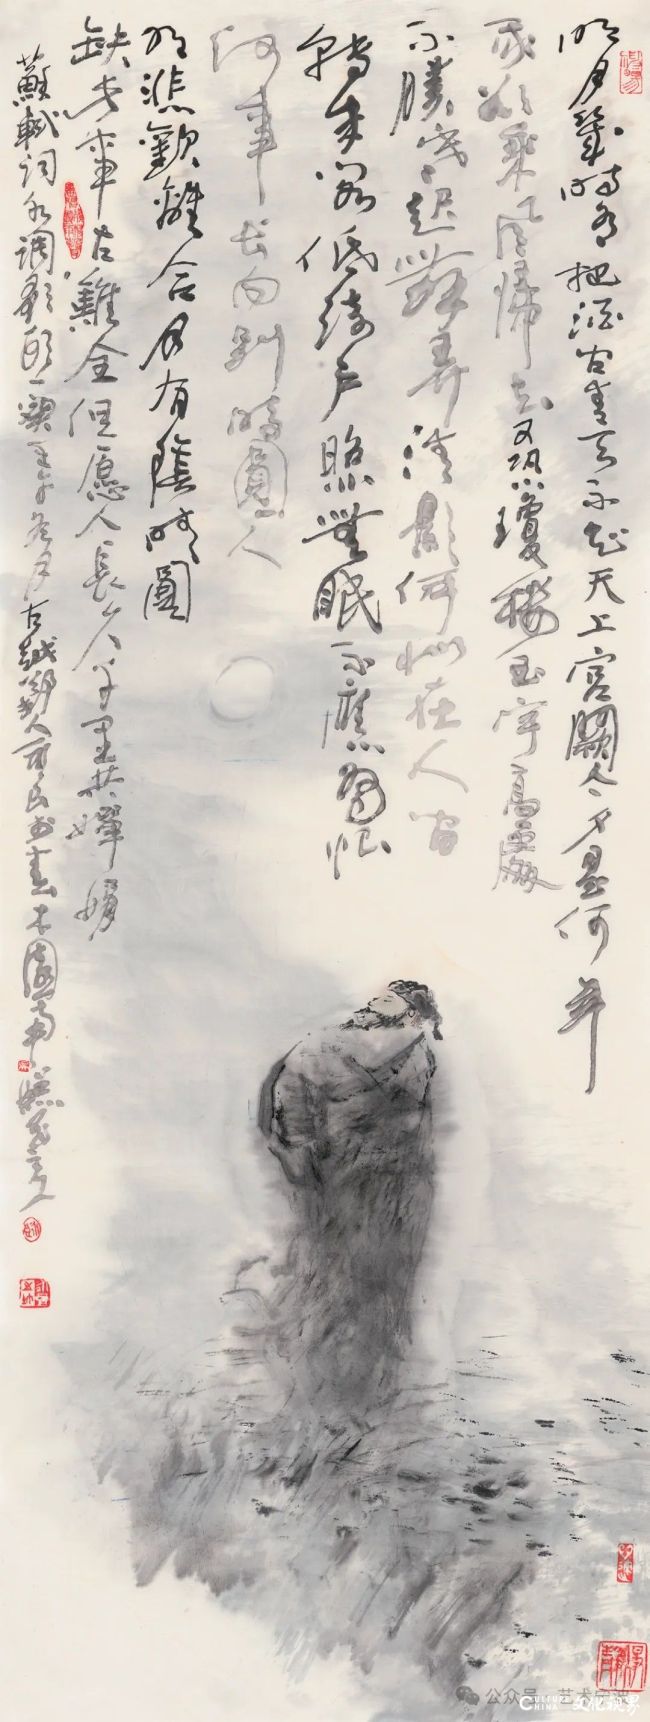 明月幾時有把酒问青天不知天上宫闕今夕是何年
我欲乘風歸去又恐瓊樓玉宇高處
不勝寒起舞弄清影何似在人间
轉朱阁低绮户照無眠不應有恨
何事长向别時圓人
有悲歡離合月有陰晴圓
缺此事古難全但愿人長久千里共嬋娟
蘇軾词水调歌頭一闋冬月古越鄞人
公众号
CULTURE CHINA 文化视界